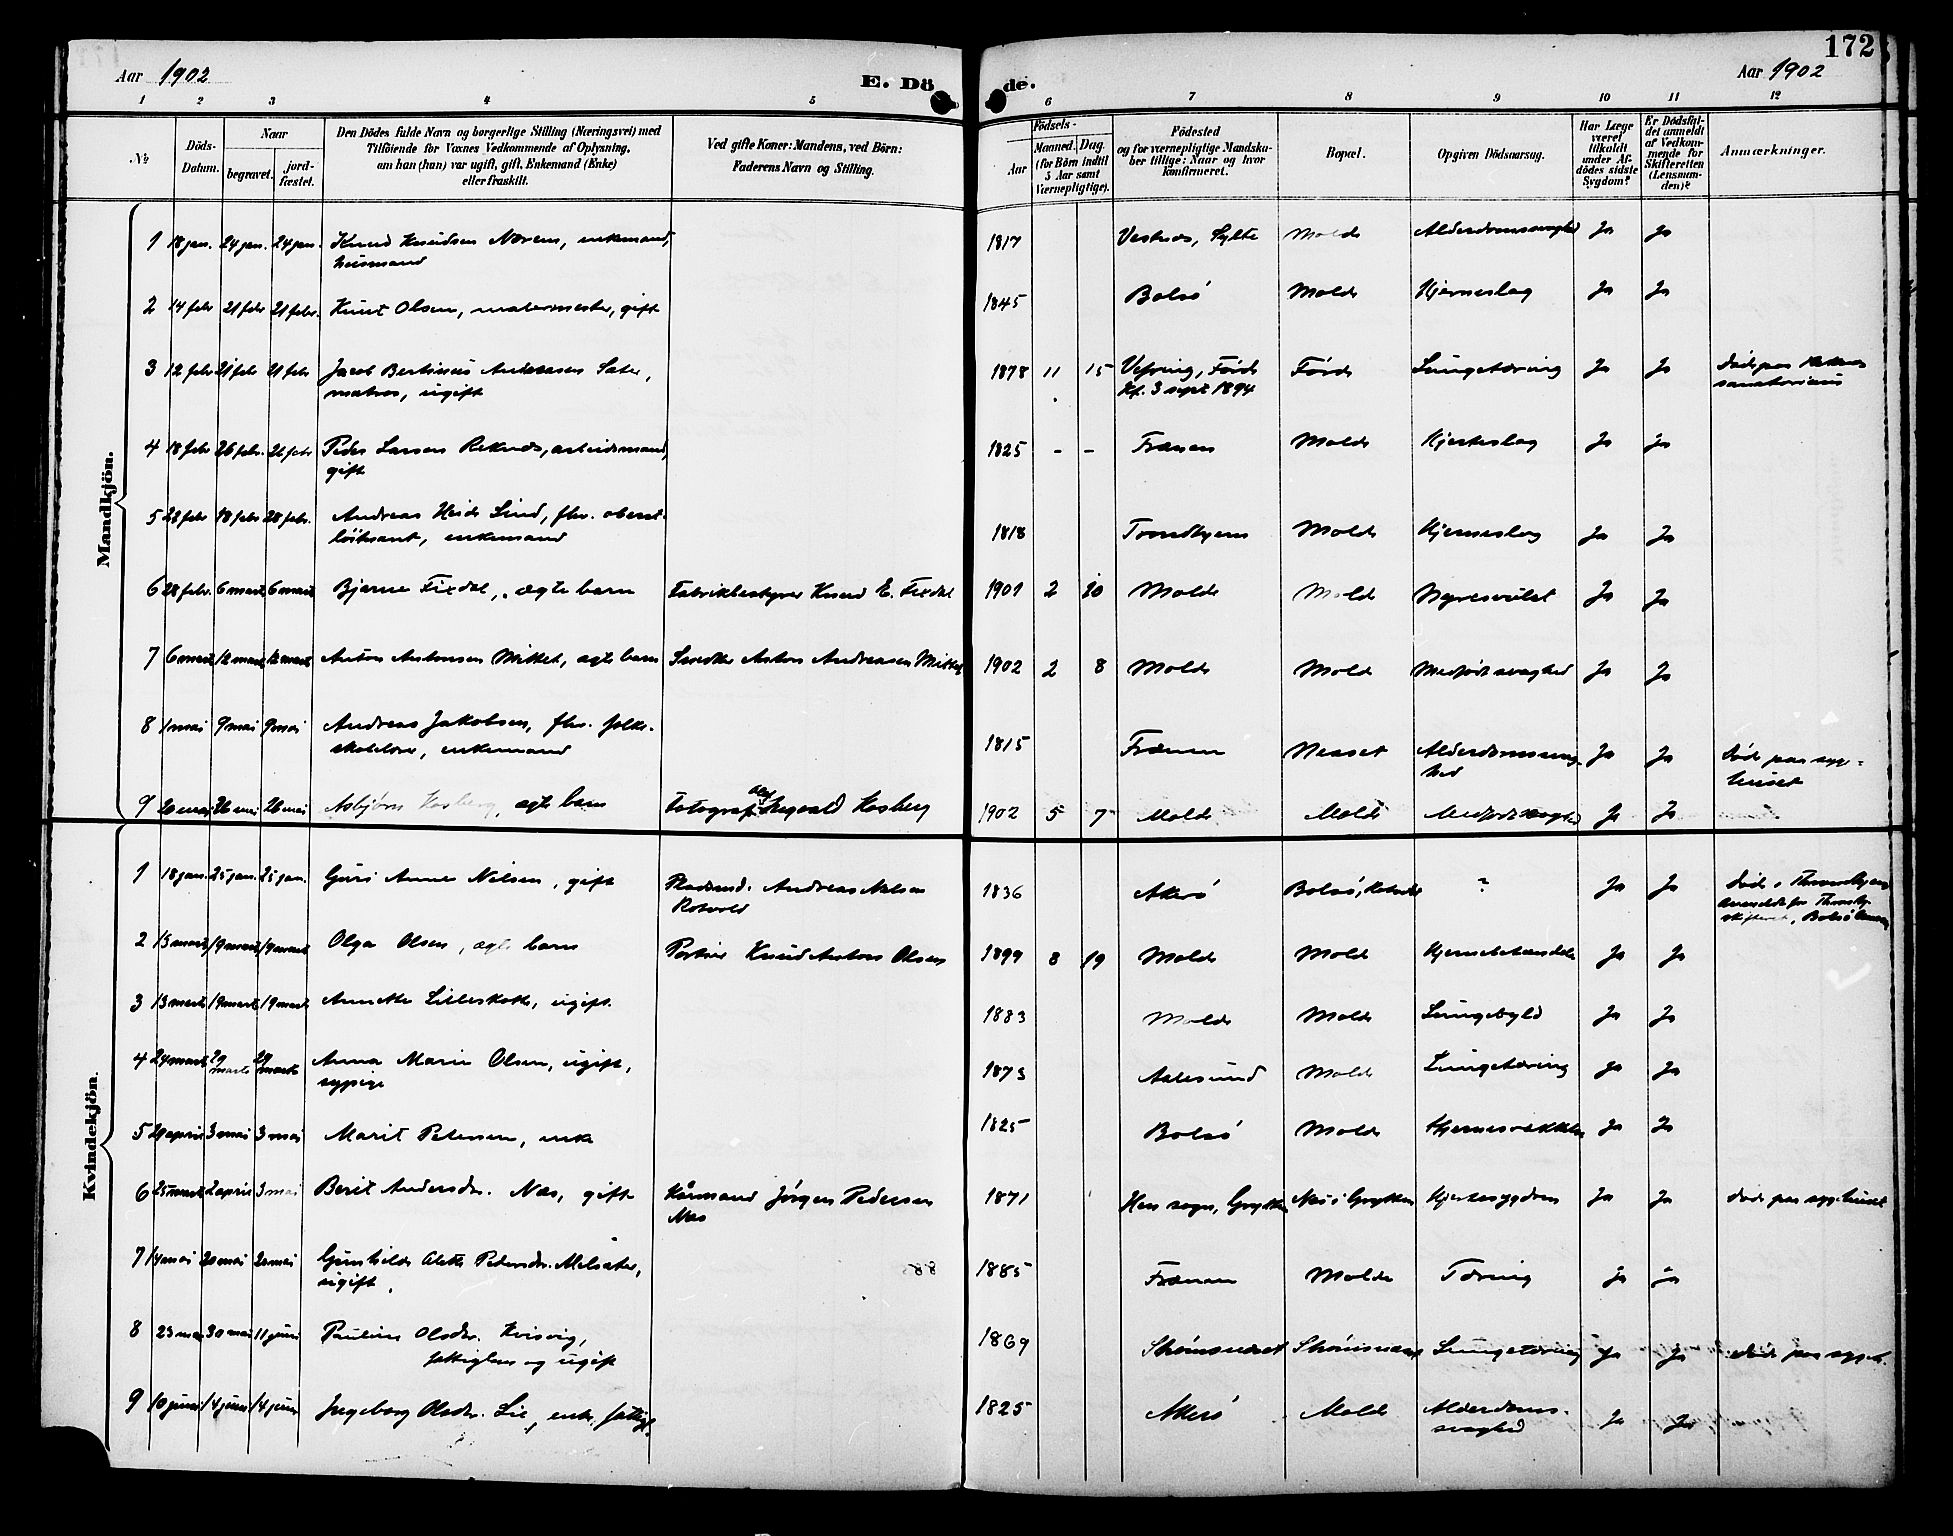 172
Aar 1902
E. Dö
de.
Aar 1902
1 2 3 4 5 6 7 8 9 10 11 12
№
Döds-
Datum.
Naar
begravet.
jord-
fæstet.
Den Dödes fulde Navn og borgerlige Stilling (Næringsvei) med
Tilföiende for Voxnes Vedkommende af Oplysning,
om han (hun) var ugift, gift, Enkemand (Enke)
eller fraskilt.
Ved gifte Koner: Mandens, ved Börn:
Faderens Navn og Stilling.
Födsels-
Aar
Maaned. Dag.
(for Börn indtil
5 Aar samt
Værnepligtige).
Födested
og for værnepligtige Mandska-
ber tillige: Naar og hvor
konfirmeret.
Bopæl.
Opgiven Dödsaarsag.
Har Læge
været
tilkaldt
under Af-
dödes sidste
Sygdom?
Er Dödsfal-
det anmeldt
af Vedkom-
mende for
Skifteretten
(Lensman-
den)?
Anmærkninger.
Mandkjön.
1 18 jan. 24 jan. 24 jan. Knud Knudsen Nærem, enkemand, 1817 Vestnes, Sylte Molde Alderdomssvaghed Ja Ja
husmand
2 14 febr 21 febr 21 febr. Knut Olsen, malermester, gift 1845 Bolsø Molde Hjerneslag Ja Ja
3 12 febr 21 febr 21 febr Jacob Bertinus Andreasen Sæter, 1878 11 15 Vefring, Førde Førde Lungetæring Ja Ja Død paa Reknes
matros, ugift Kf. 3 sept 1894 sanatorium
4 18 febr 26 febr. 26 febr Peder Larsen Reknes, arbeidsmand, 1825 - - Frænen Molde Hjerteslag Ja Ja
gift
5 22 febr 18 febr 28 febr. Andreas Heide Lind, fhv. oberst- 1818 Trondhjem Molde Hjerneslag Ja Ja
löitnant, enkemand
6 28 febr. 6 marts 6 marts Bjarne Fixdal, ægte barn Fabrikbestyrer Knud E. Fixdal 1901 2 20 Molde Molde Nyresvulst Ja Ja
7 6 marts 12 marts 12 marts Anton Antonsen Mittet, ægte barn Snedker Anton Andreasen Mittet 1902 2 8 Molde Molde Medfødt svaghed Ja Ja
8 1 mai 9 mai 9 mai Andreas Jakobsen, fhv. folke- 1815 Frænen Nesset Alderdomssvag- Ja Ja Død paa syge-
skolelærer, enkemand hed huset
9 20 mai 26 mai 26 mai Asbjørn Kosberg, ægte barn Fotograf Olaf Ingvald Kosberg 1902 5 7 Molde Molde Medfødt svaghed Ja Ja
Kvindekjön.
1 18 jan. 25 jan. 25 jan. Guri Anne Nilsen, gift Pladsmd. Andreas Nilsen 1836 Akerø Bolsø, Rotvold ? Ja Ja Død i Thronhjem
Rotvold
2 13 marts 19 marts 19 marts Olga Olsen, ægte barn Portier Knud Anton Olsen 1899 8 19 Molde Molde Hjernebetændelse Ja Ja
3 13 marts 19 marts 19 marts Annette Lilleskotte, ugift. 1883 Molde Molde Lungebyld Ja Ja
4 24 marts 29 marts 29 marts Anna Marie Olsen, ugift, 1873 Aalesund Molde Lungetæring Ja Ja
sypige
5 29 april 3 mai 3 mai Marit Petersen, enke 1825 Bolsø Molde Ja Ja
6 25 marts 2 april 3 mai Berit Andersdr. Næs, gift Kårmand Jörgen Pedersen 1871 Hen sogn, Grytten Næs i Grytten Hjertesygdom Ja Ja død paa sygehuset
Næs
7 14 mai 20 mai 20 mai Gunhilde Alette Pedersdr. Melsæter, 1885 Frænen Molde Tæring Ja Ja
ugift.
8 23 mai 30 mai 11 juni Pauline Olsdr. Kvisvig, 1869 Strömsneset Strömsneset Lungetæring Ja Ja død paa sygeh.
fattiglem og ugift
9 10 juni 14 juni 14 juni Ingeborg Olsdr. Lie, enke, fattigl. 1825 Akerø Molde Alderdoms- Ja Ja
svaghed